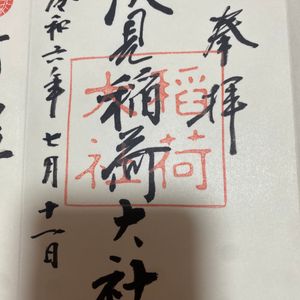 奉拝
伏見稲荷大社
稲荷
大社
令和六年七月十一日